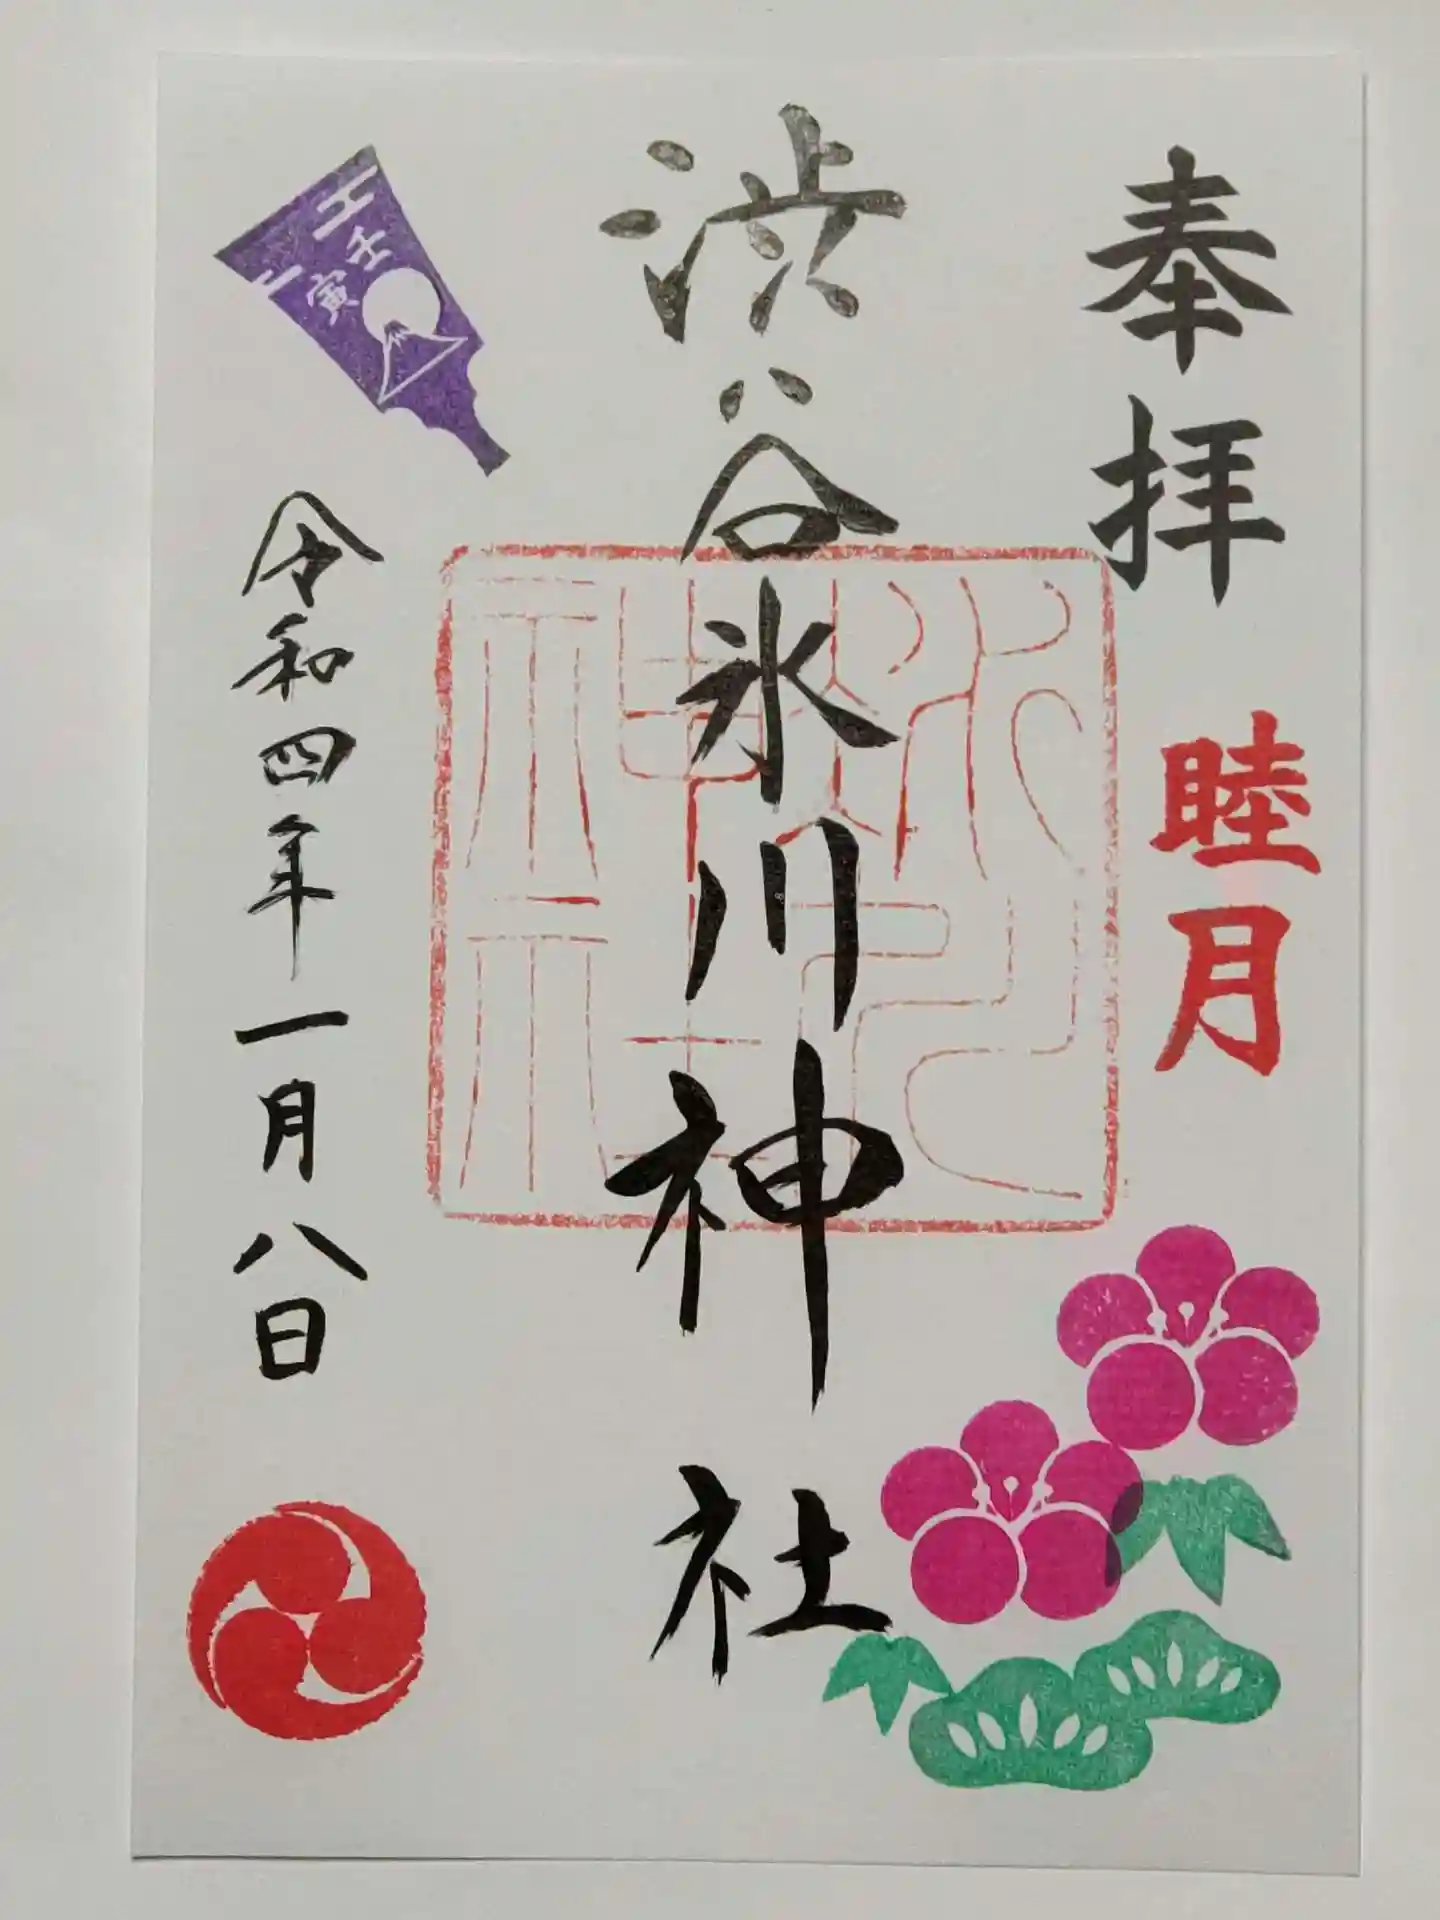 奉拝
睦月
渋谷氷川神社
氷川
神社
壬寅
令和四年一月八日